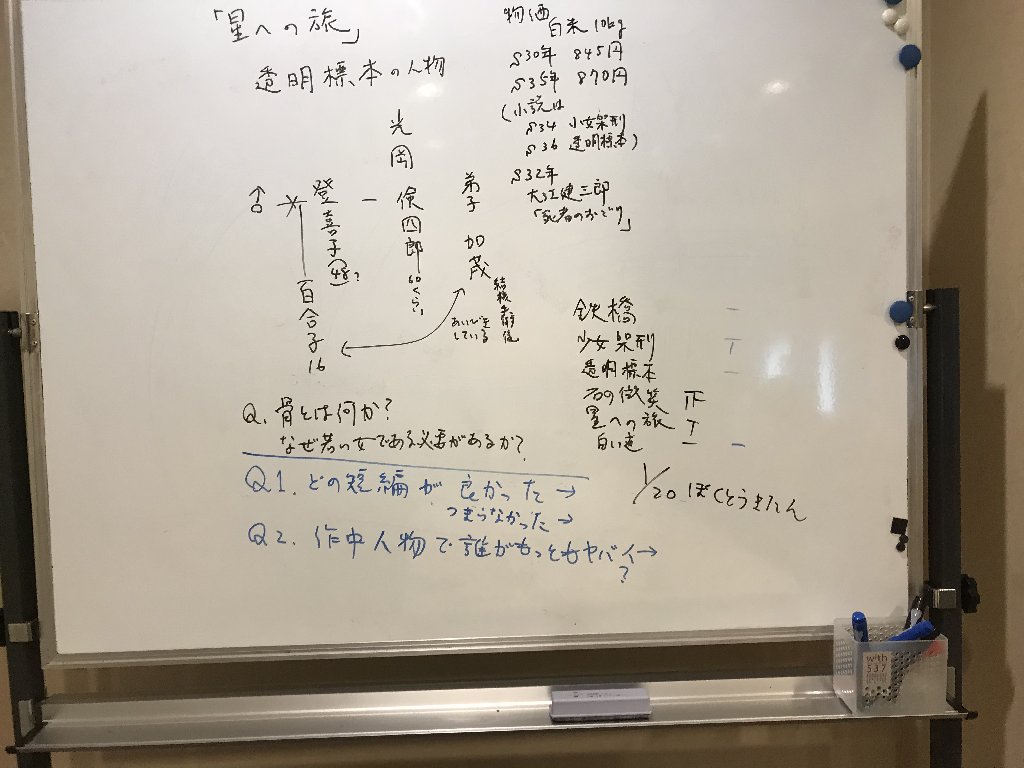 「星への旅」
透明標本の人物
光岡
倹四郎 60くらい
登喜子 (48)?
百合子 16
弟子 加茂
あいびきしている
物価
白米 10kg
S30年 845円
S35年 870円
(小説は
S34 少女架刑
S36 透明標本)
S32年
大江健三郎
「死者のおごり」
鉄橋 一
少女架刑 T
透明標本 一
石の微笑 正
星への旅 T
白い道 一 一
Q. 骨とは何か?
なぜ若い女である必要があるか?
Q1. どの短編が 良かった→
つまらなかった→
Q2. 作中人物で誰がもっともヤバイ→
?
1/20 ぼくとうきたん
with
537